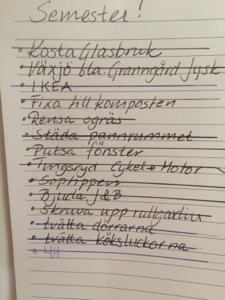 Semester!
• Kosta Glasbruk
• Växjö bla. Granngård Jysk
• IKEA
• Fixa till komposten
• Rensa ogräs
• Städa pannrummet
• Putsa fönster
• Tingsryd Cykel + Motor
• Soptippen
• Bjuda J&B
• Skruva upp rullgardin
• tvätta dörrarna
• tvätta köksluckorna